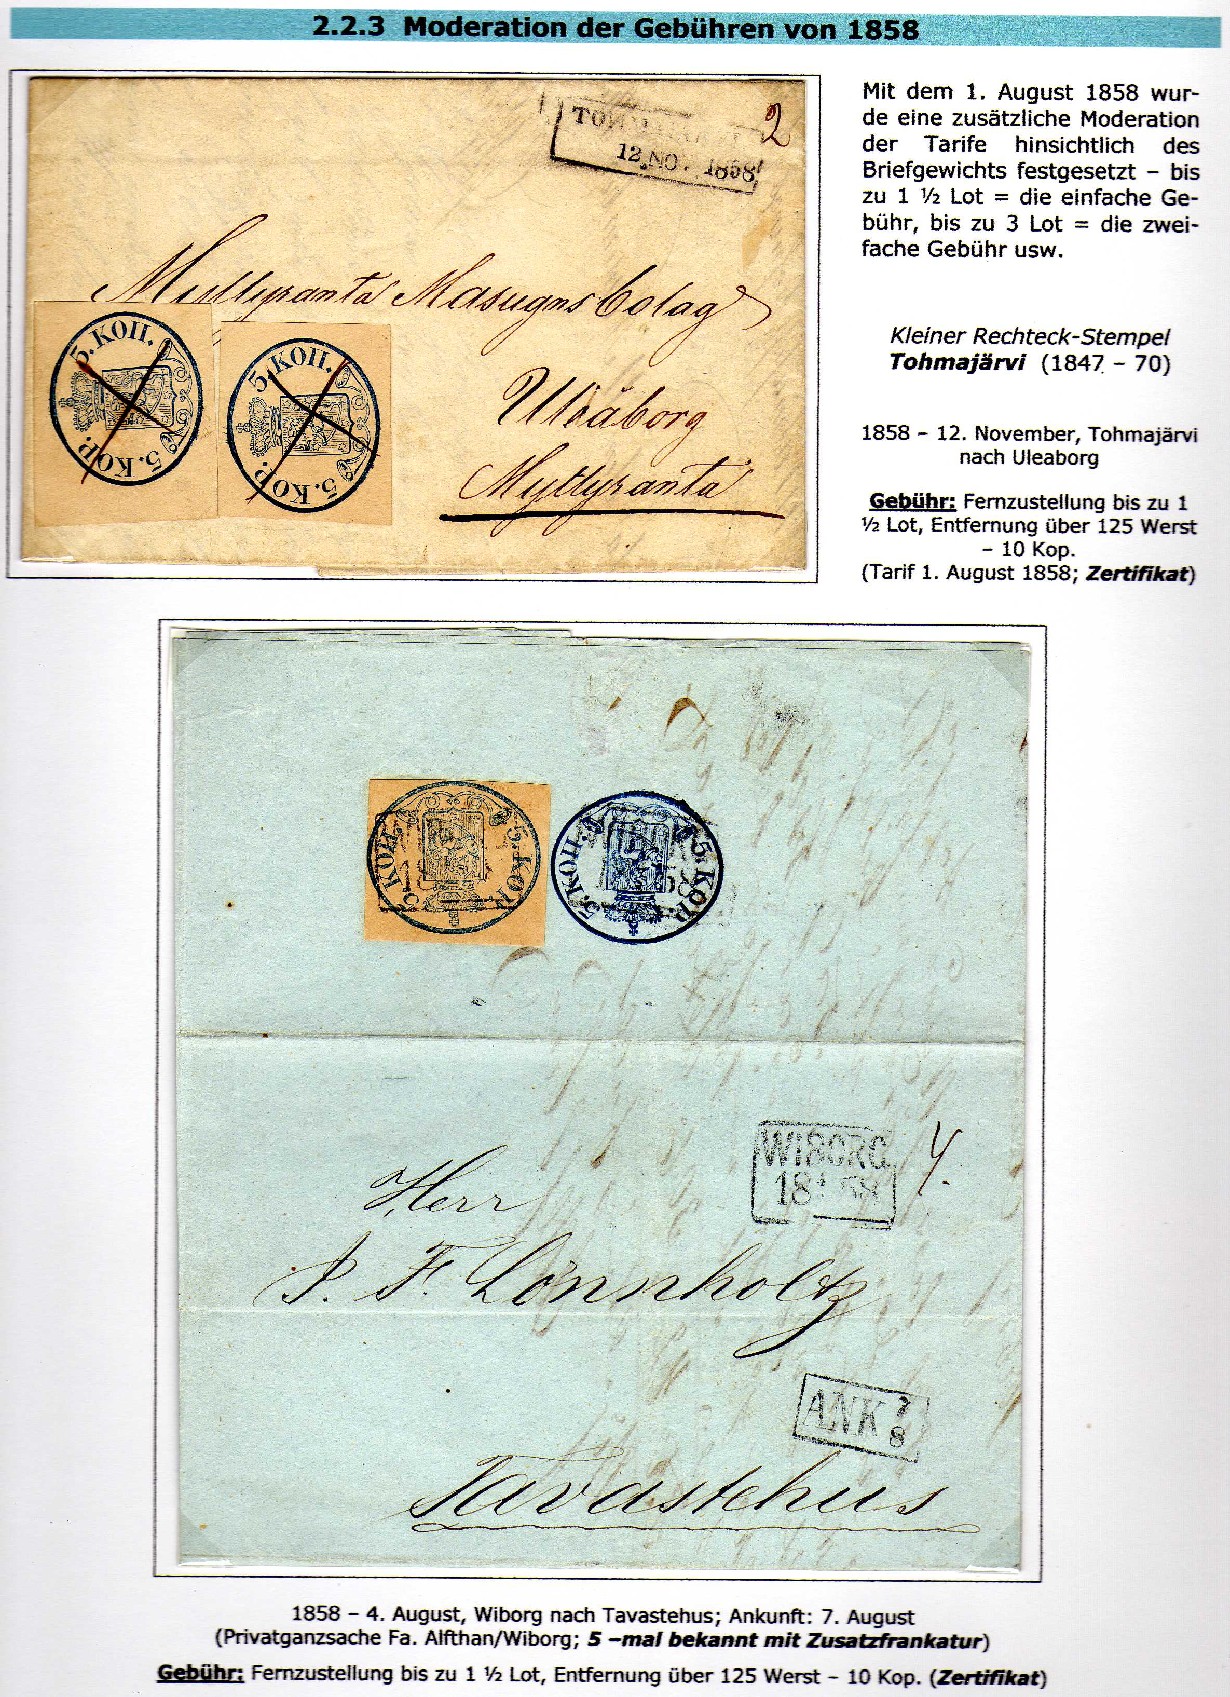 2.2.3 Moderation der Gebühren von 1858
Mit dem 1. August 1858 wur-
de eine zusätzliche Moderation
der Tarife hinsichtlich des
Briefgewichts festgesetzt – bis
zu 1 ½ Lot = die einfache Ge-
bühr, bis zu 3 Lot = die zwei-
fache Gebühr usw.
Kleiner Rechteck-Stempel
Tohmajärvi (1847 – 70)
1858 – 12. November, Tohmajärvi
nach Uleaborg
Gebühr: Fernzustellung bis zu 1
½ Lot, Entfernung über 125 Werst
– 10 Kop.
(Tarif 1. August 1858; Zertifikat)
2
12. NO. 1858
Myllyranta Masugns Bolag
Uleåborg
Myllyranta
5. КОП. 5. KOP.
5. КОП. 5. KOP.
5. КОП. 5. KOP.
5. КОП. 5. KOP.
WIBORG
18 58
4.
Herr
J. F. Lönnholtz
ANK 7
8
Tavastehus
1858 – 4. August, Wiborg nach Tavastehus; Ankunft: 7. August
(Privatganzsache Fa. Alfthan/Wiborg; 5 –mal bekannt mit Zusatzfrankatur)
Gebühr: Fernzustellung bis zu 1 ½ Lot, Entfernung über 125 Werst – 10 Kop. (Zertifikat)